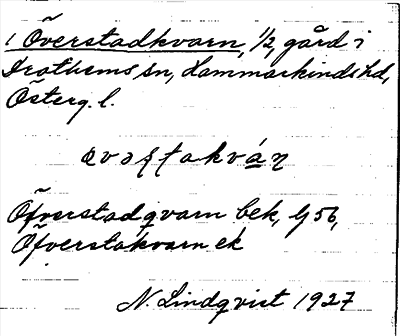 1 Överstadkvarn, 1/2, gård i
Drothems sn, Hammarkinds hd,
Österg. l.
Öfverstadqvarn bek, G 56,
Öfverstakvarn ek
N. Lindqvist 1927